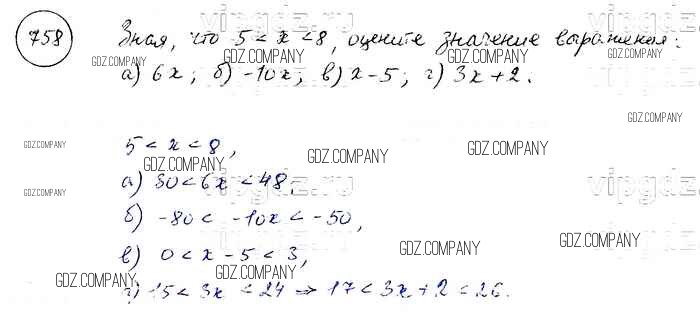 758 Зная, что 5 < x < 8, оцените значение выражения:
а) 6x; б) -10x; в) x - 5; г) 3x + 2.
5 < x < 8,
а) 30 < 6x < 48,
б) -80 < -10x < -50,
в) 0 < x - 5 < 3,
г) 15 < 3x < 24 ⇒ 17 < 3x + 2 < 26.
GDZ.COMPANY
GDZ.COMPANY
GDZ.COMPANY
GDZ.COMPANY
GDZ.COMPANY
GDZ.COMPANY
GDZ.COMPANY
GDZ.COMPANY
GDZ.COMPANY
GDZ.COMPANY
GDZ.COMPANY
GDZ.COMPANY
GDZ.COMPANY
vipgdz.ru
vipgdz.ru
vipgdz
vipgdz